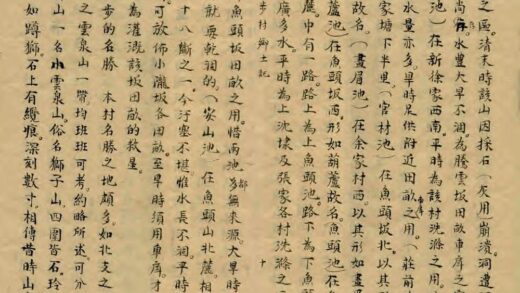 之區。清末時該山因採石(灰用)崩潰洞遭
尚。水豐大旱不涸。為騰雲坂田畝車庠之
池)在新徐家西南。平時為該村洗滌之用。
水量亦多。旱時足供附近田畝之用。(莊前
家塘下半里(宮村池)在魚頭坂北。以其
故名。(畫眉池)在余家村西。以其形如畫眉
蘆池)在魚頭坂西。形如葫蘆故名。魚頭池)在
壠中有一路。路上為上魚頭池。路下為下魚
廣多水。平時為上沈埭及張家各村洗滌之
步村鄉土記 十
魚頭坂田畝之用。惜兩池都無來源。大旱時
就要乾涸的。(安山池)在魚頭山北麓。相
十八斷之一。今汙塞不堪。惟水長不涸。平時
可放佈小瀧坂各田畝。至旱時須用車庠。才
為灌溉該坂田畝的救星。
步的名勝 本村名勝之地頗多。如北支之
之雲泉山一帶。均班班可考。約略所述。可分
山一名小雲泉山。俗名獅子山。四圍皆石。玲
如蹲獅。石上有纜痕。深刻數寸。相傳昔時山